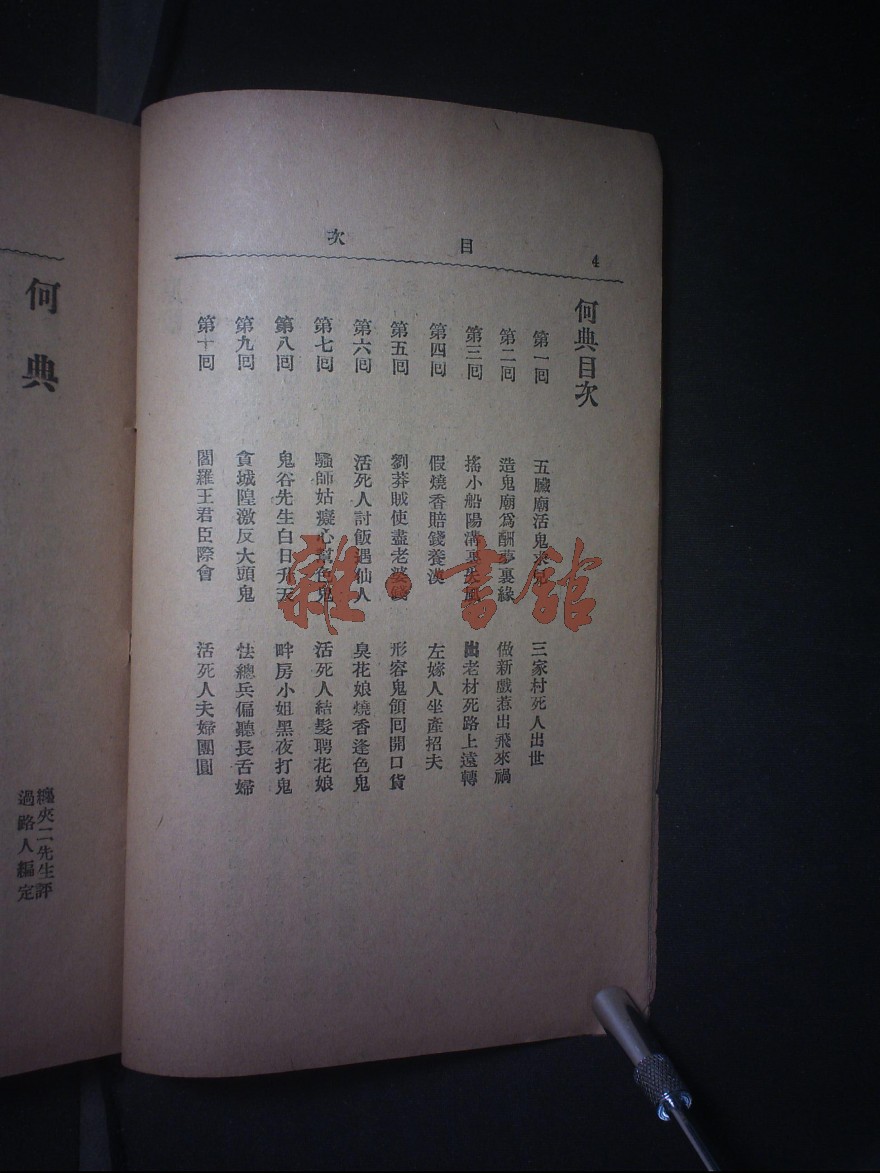 目次
4
何典目次
第一回 五臟廟活鬼求兒 三家村死人出世
第二回 造鬼廟爲酬夢裏緣 做新戲惹出飛來禍
第三回 搖小船陽溝裏失風 出老材死路上遠轉
第四回 假燒香賠錢養漢 左嫁人坐產招夫
第五回 劉莽賊使盡老婆錢 形容鬼領回開口貨
第六回 活死人討飯遇仙人 臭花娘燒香逢色鬼
第七回 騷師姑癡心幫色鬼 活死人結髮聘花娘
第八回 鬼谷先生白日升天 畔房小姐黑夜打鬼
第九回 貪城隍激反大頭鬼 怯總兵偏聽長舌婦
第十回 閻羅王君臣際會 活死人夫婦團圓
何典
纏夾二先生評
過路人編定
雜·書館